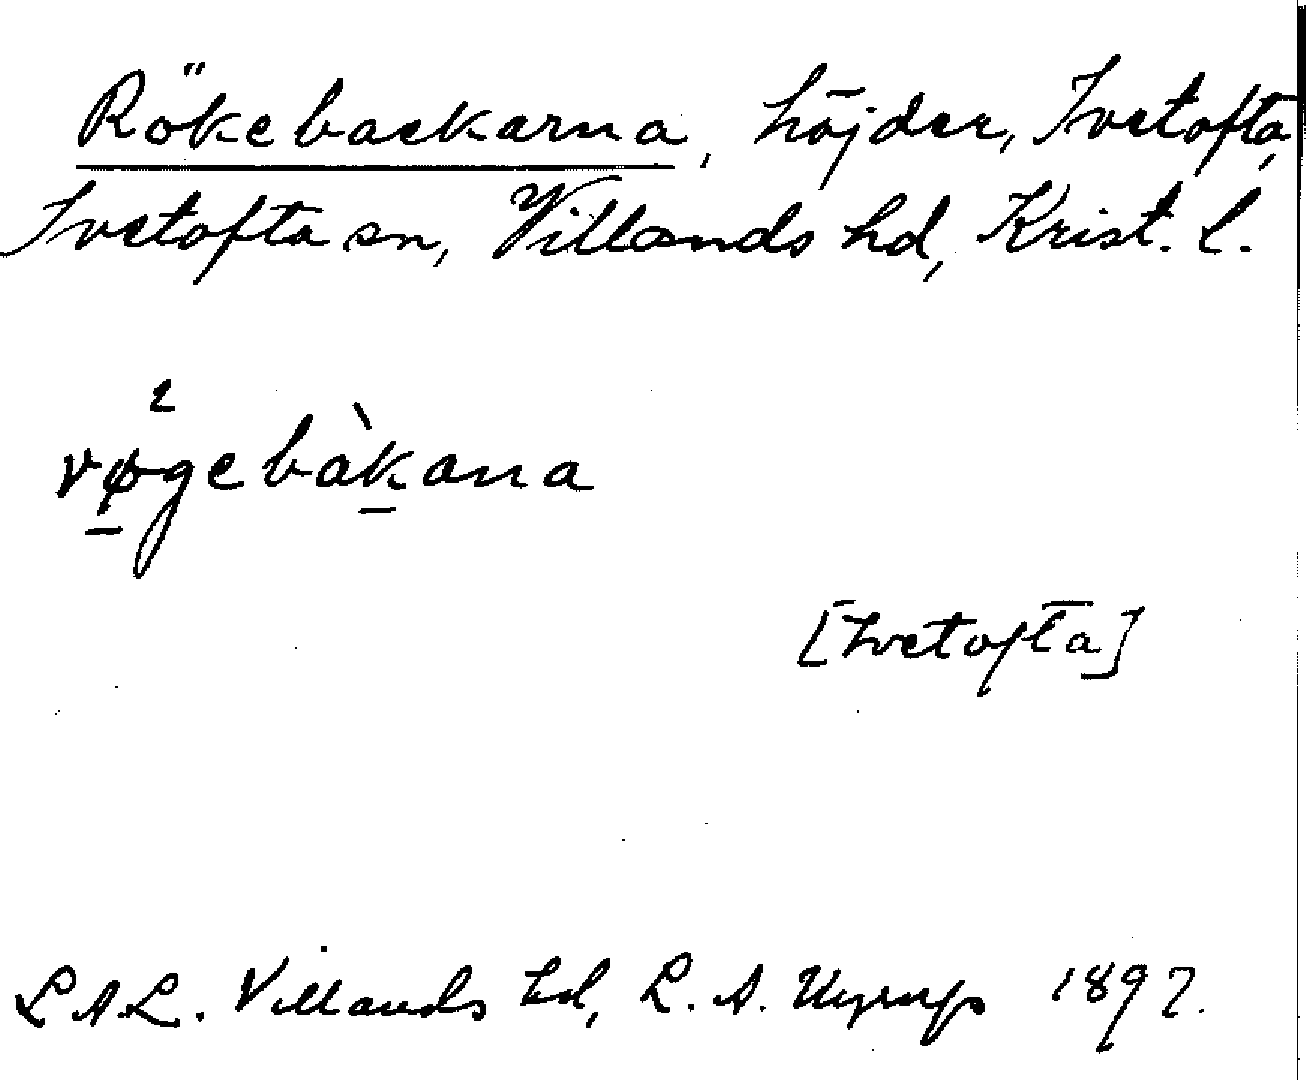 Rökebackarna, höjder, Ivetofta,
Ivetofta sn, Villands hd, Krist. l.
vøgebàkana
[Ivetofta]
L.A.L. Villands hd, L. A. 1897.